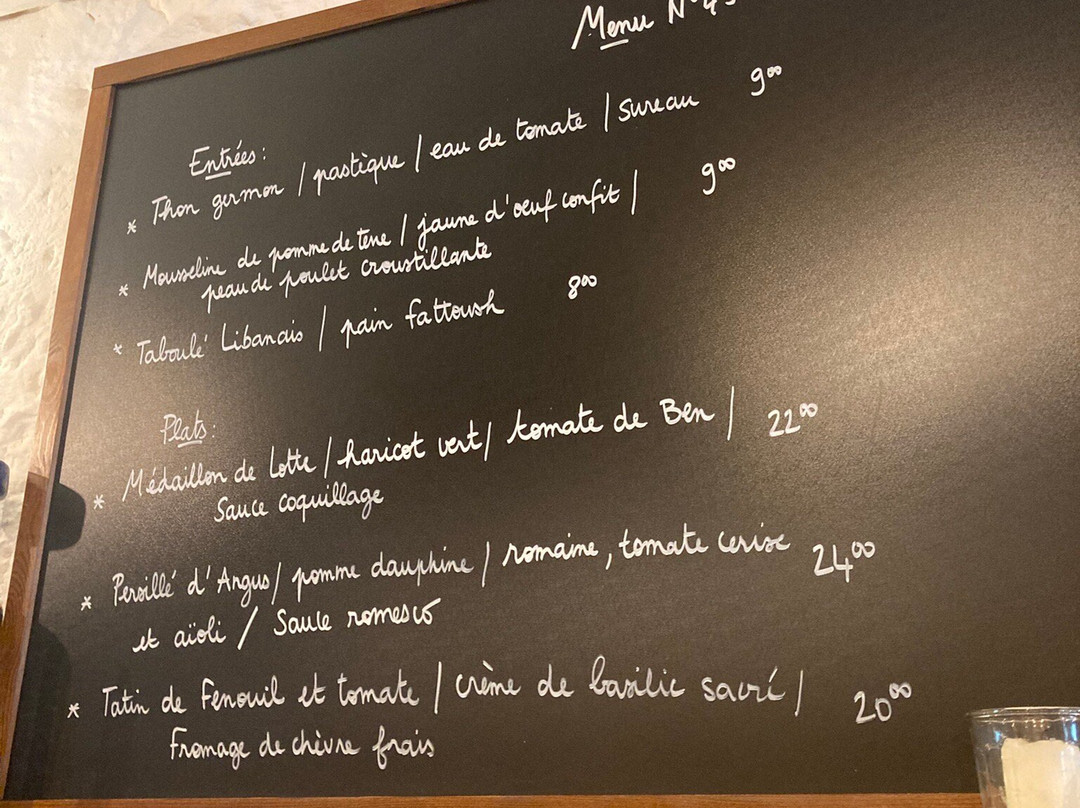 Menu N°
Entrées :
* Thon germon / pastèque / eau de tomate / sureau 9⁰⁰
* Mousseline de pomme de terre / jaune d'oeuf confit / 9⁰⁰
peau de poulet croustillante
* Taboulé Libanais / pain fattoush 8⁰⁰
Plats :
* Médaillon de Lotte / haricot vert / tomate de Ben / 22⁰⁰
Sauce coquillage
* Persillé d'Angus / pomme dauphine / romaine, tomate cerise 24⁰⁰
et aïoli / Sauce romesco
* Tatin de Fenouil et tomate / crème de basilic sacré / 20⁰⁰
Fromage de chèvre frais